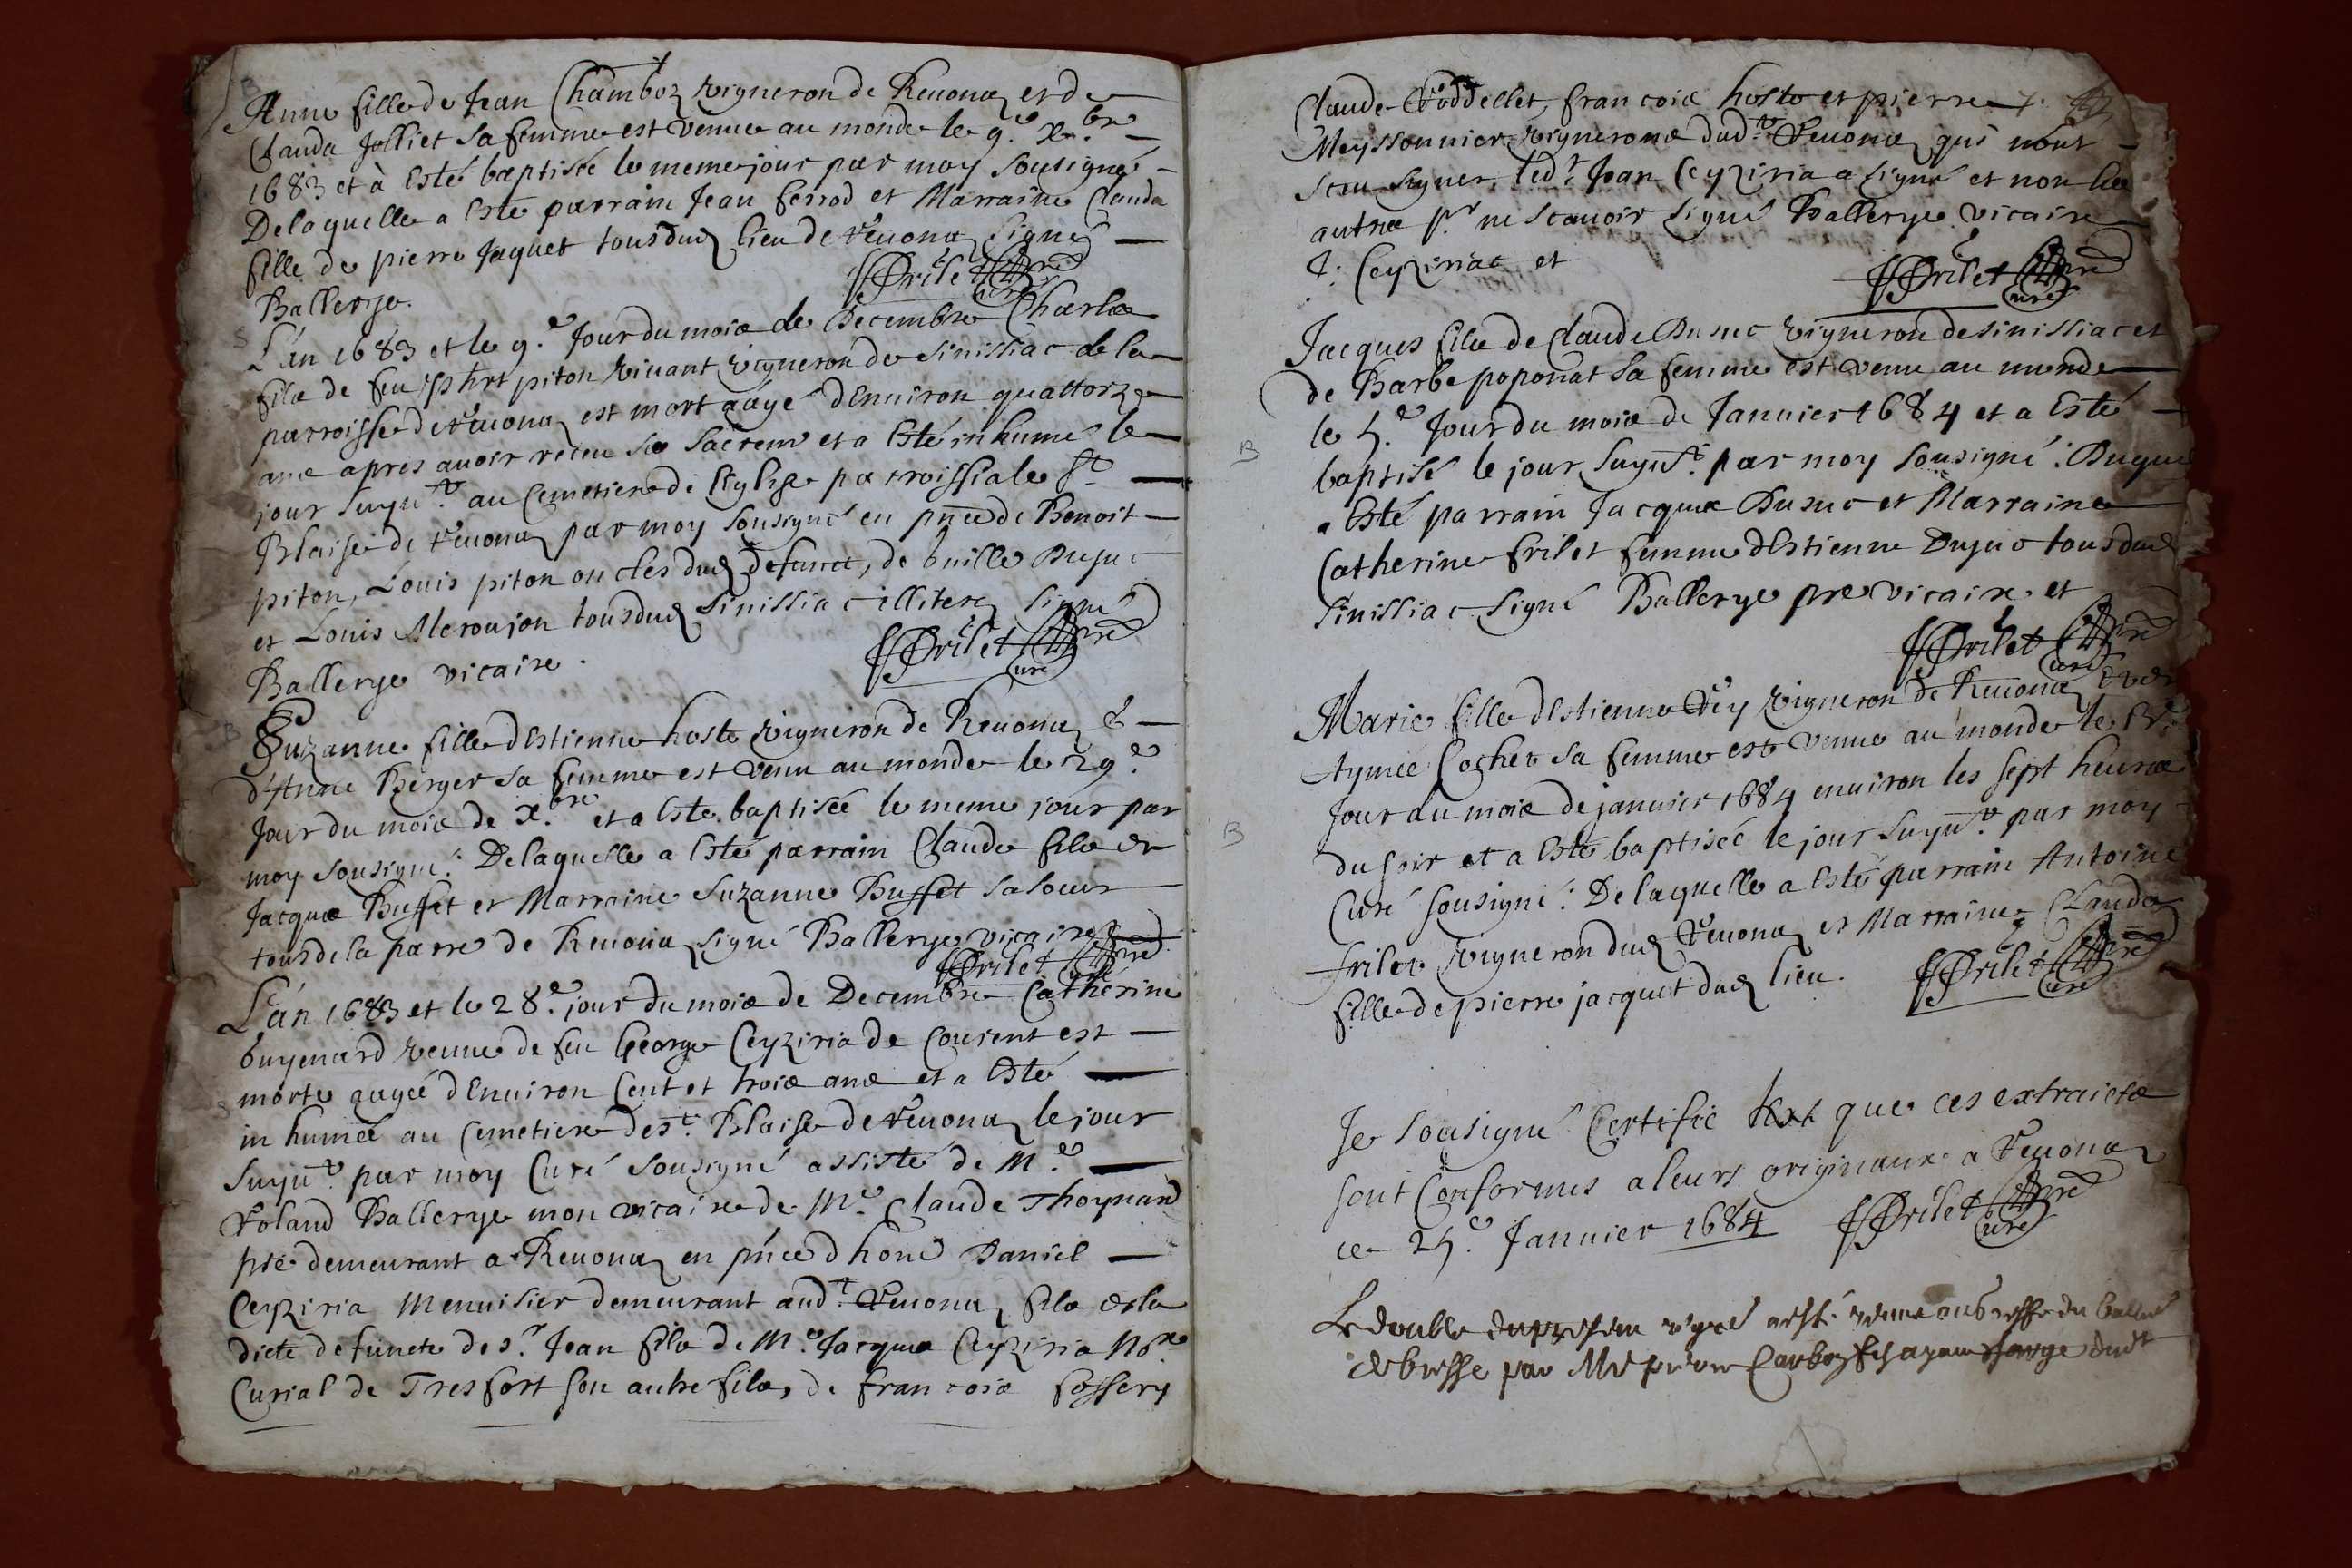 Anne fille de Jean Chamboz vigneron de Reuonaz et de
Clauda Jolliet sa femme est venue au monde le 9.e x.bre
1683 et à esté baptisée le meme jour par moy sousigné
De laquelle a esté parrain Jean ferrod et Marraine Clauda
fille de pierre Jaquet tous dud lieu de reuonaz Signé
Ballerye. Frilet pre Curé
L'án 1683 et le 9.e Jour du mois de Decembre Charles
fils de feu phrt piton viuant vigneron de Sinissiac de la
parroisse de reuonaz est mort aâgé d'Enuiron quattorze
ans apres auoir receu ses Sacremts et a esté inhumé le
jour suyut au Cemetiere de l'église parroissiale St
Blaise de reuonaz par moy sousigné en pnce de Benoit
piton, Louis piton oncles dud defunct, de
et Louis tous dud Sinissiac illiterez signé
Ballerye vicaire. Frilet pre Curé
Suzanne fille d'Estienne hoste vigneron de Reuonaz &
d'Anne Berger sa femme est venu au monde le 29.e
Jour du mois de x.bre et a esté baptisée le meme jour par
moy sousigné: De laquelle a esté parrain Claude fils de
Jacques Buffet et Marraine Suzanne Buffet sa soeur
tous de la parre de Reuonaz signé Ballerye vicaire
Frilet pre Curé
L'án 1683 et le 28.e jour du mois de Decembre Catherine
buyenard veuue de feu George Ceyziria de Courent est
morte aagée d'Enuiron Cent et trois ans et a esté
inhumée au Cemetiere de St. Blaise de reuonaz le jour
suyut par moy Curé sousigné assisté de M.e
roland Ballerye mon vicaire de M.e Claude Thoynard
pre demeurant a Reuonaz en pnce d'hone Daniel
Ceyziria Menuisier demeurant aud.t reuonaz fils de la
dicte defuncte de s.r Jean fils de M.e Jacques Ceyziria No.re
Curial de Tresfort son autre fils, de francois
Claude roddellet, francois hoste et pierre
Meyssonnier vignerons dud.t reuonaz qui nont
sceu signer, led.t Jean Ceyziria a signé et non les
autres p.r ne scauoir signé Ballerye vicaire
J: Ceyziriac et Frilet pre Curé
Jacques fils de Claude Dusuc vigneron de sinissiac et
de Barbe poponat sa femme est venu au monde
le 5.e Jour du mois de Januier 1684 et a esté
baptisé le jour suyut par moy sousigné: Duquel
a esté parrain Jacques Dusuc et Marraine
Catherine frilet femme d'Estienne Dujuc tous dud
sinissiac signé Ballerye pre vicaire et
Frilet pre Curé
Marie fille d'Estienne rey vigneron de Reuonaz & de
Aymée Cochet sa femme est venue au monde le
Jour du mois de januier 1684 enuiron les sept heures
du soir et a esté baptisée le jour suyut par moy
Curé sousigné: De laquelle a esté parrain Antoine
frilet vigneron dud reuonaz et Marraine Clauda
fille de pierre jacquet dud lieu. Frilet pre Curé
Je sousigné Certifie que ces extraicts
sont Conformes a leurs originaux a reuonaz
ce 25.e Januier 1684 Frilet pre Curé
Le double du present a esté au greffe du
de bresse par